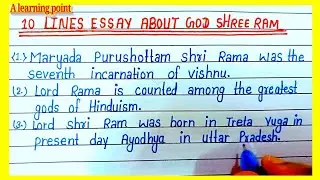 A learning point
10 LINES ESSAY ABOUT GOD SHREE RAM
(1.) Maryada Purushottam Shri Rama was the
seventh incarnation of vishnu.
(2.) Lord Rama is counted among the greatest
gods of Hinduism.
(3.) Lord Shri Ram was born in Treta Yuga in
present day Ayodhya in uttar Pradesh.